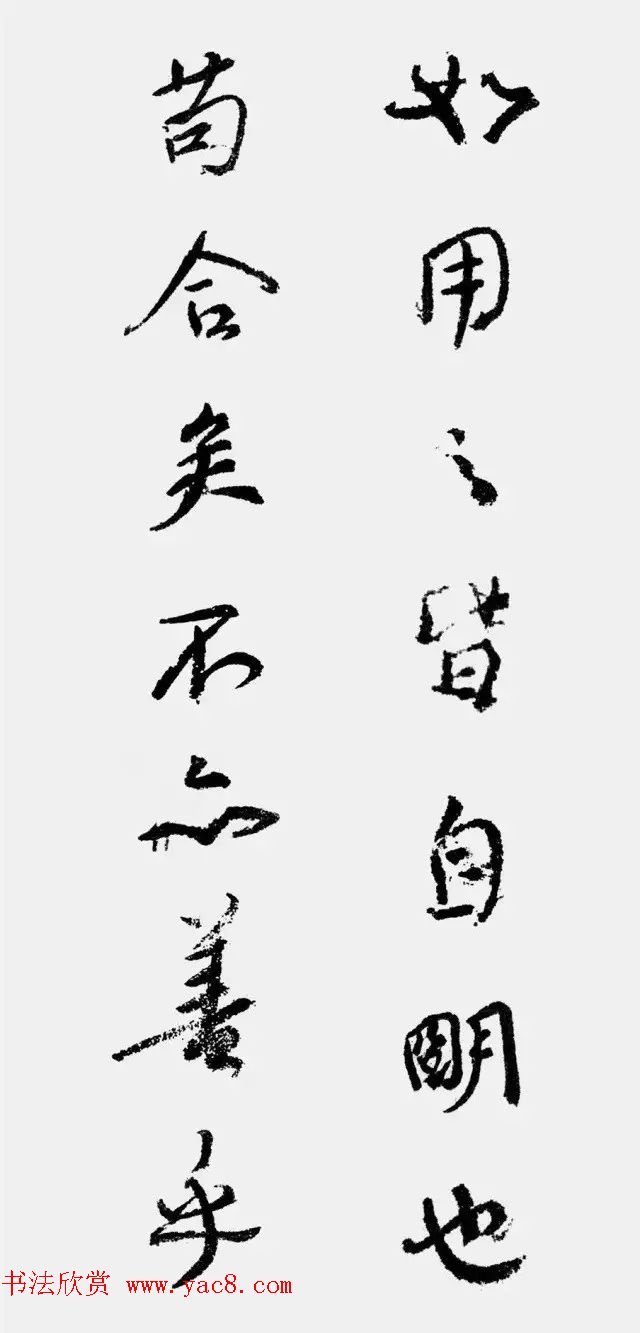 如用之皆自朙也
苟合矣不亦善乎
书法欣赏 www.yac8.com